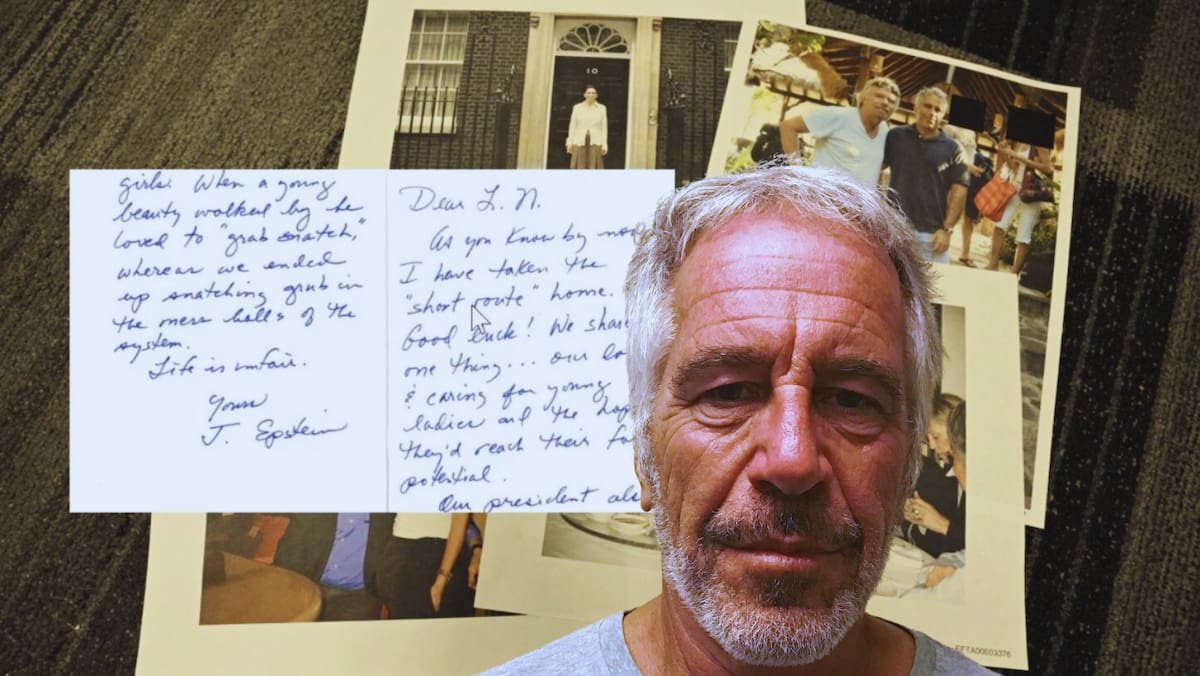 10
girls. When a young
beauty walked by he
loved to "grab snatch,"
whereas we ended
up snatching grub in
the mess halls of the
system.
Life is unfair.
Yours
J. Epstein
Dear L. N.
As you know by now
I have taken the
"short route" home.
Good luck! We share
one thing... our
& caring for young
ladies and the
they'd reach their
potential.
Our president
EFTA00003376